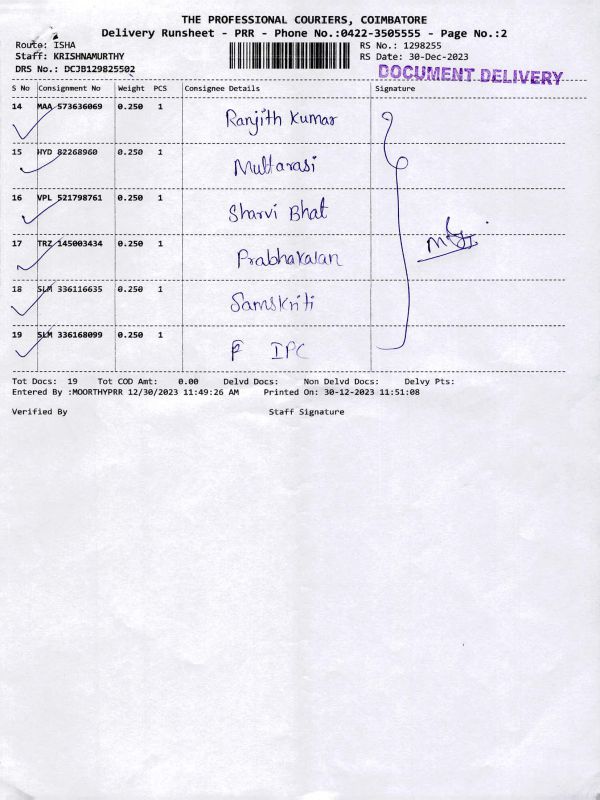 THE PROFESSIONAL COURIERS, COIMBATORE
Delivery Runsheet - PRR - Phone No.:0422-3505555 - Page No.:2
Route: ISHA RS No.: 1298255
Staff: KRISHNAMURTHY RS Date: 30-Dec-2023
DRS No.: DCJB129825502 DOCUMENT DELIVERY
S No Consignment No Weight PCS Consignee Details Signature
14 MAA 573636069 0.250 1 Ranjith Kumar
15 HYD 82268960 0.250 1 Multarasi
16 VPL 521798761 0.250 1 Sharvi Bhat
17 TRZ 145003434 0.250 1 Prabhakaran
18 SLM 336116635 0.250 1 Samskriti
19 SLM 336168099 0.250 1 IPC
Tot Docs: 19 Tot COD Amt: 0.00 Delvd Docs: Non Delvd Docs: Delvy Pts:
Entered By :MOORTHYPRR 12/30/2023 11:49:26 AM Printed On: 30-12-2023 11:51:08
Verified By Staff Signature